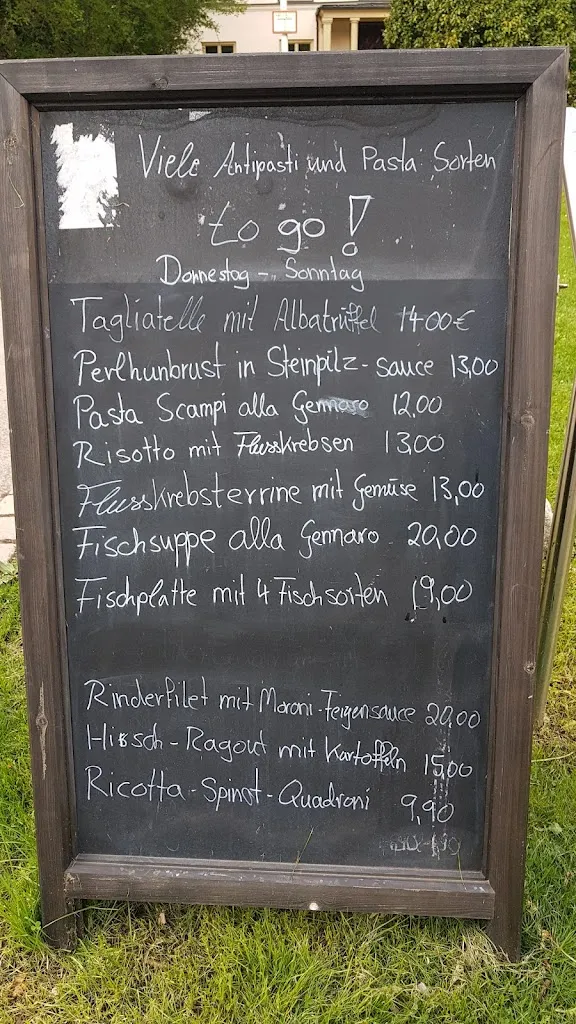 Viele Antipasti und Pasta Sorten
to go!
Donnestag - Sonntag
Tagliatelle mit Albatrüffel 14.00€
Perlhunbrust in Steinpilz-sauce 13,00
Pasta Scampi alla Gennaro 12,00
Risotto mit Flusskrebsen 13,00
Flusskrebsterrine mit Gemüse 13,00
Fischsuppe alla Gennaro 20,00
Fischplatte mit 4 Fischsorten 19,00
Rinderfilet mit Maroni-Feigensauce 20,00
Hirsch-Ragout mit Kartoffeln 15,00
Ricotta-Spinat-Quadroni 9,90